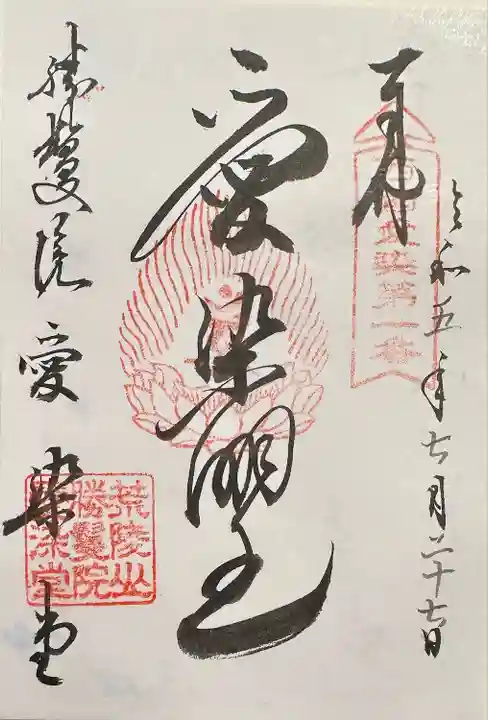 奉拝
令和五年七月二十七日
西国愛染第一番
愛染明王
勝鬘院 愛染堂
荒陵山
勝鬘院
愛染堂